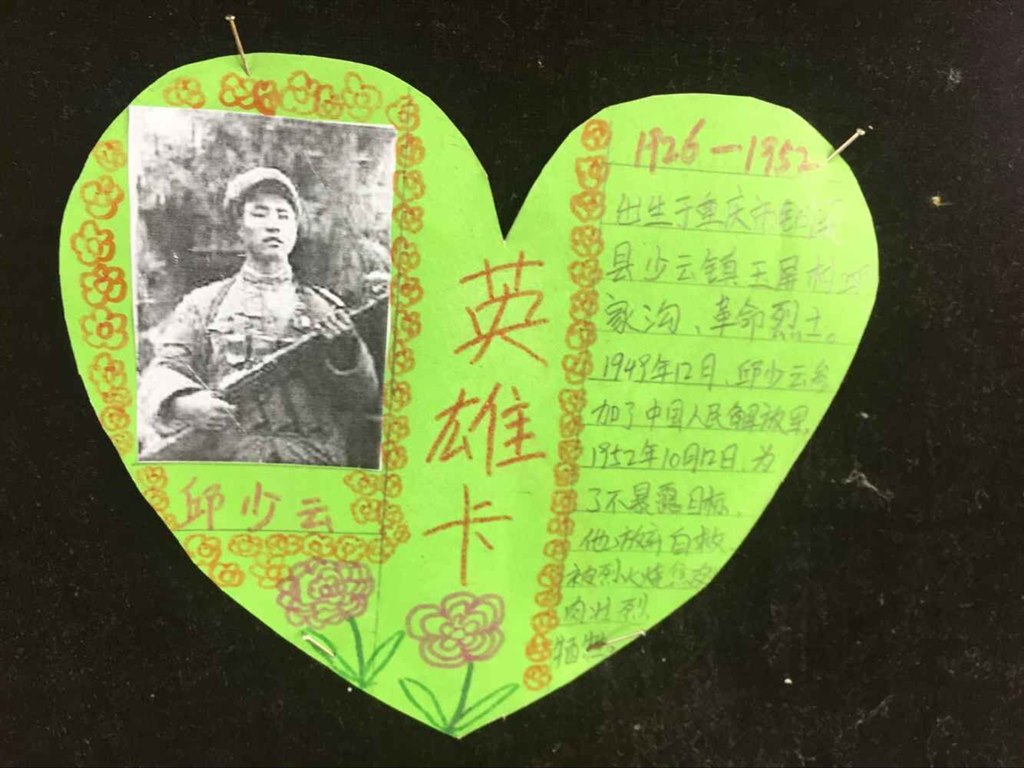 邱少云
英雄卡
1926—1952
出生于重庆市铜梁
县少云镇玉屏村邱
家沟、革命烈士。
1949年12月,邱少云参
加了中国人民解放军,
1952年10月12日,为
了不暴露目标,
他放弃自救,
被烈火烧焦皮
肉壮烈
牺牲。